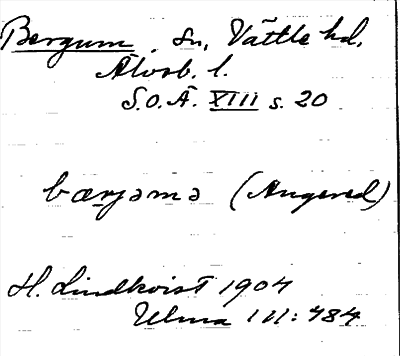 Bergum, sn, Vättle hd,
Älvsb. l.
S.O.Ä. XIII s. 20
bærjəmə (Angered)
H. Lindkvist 1904
Ulma 111:484